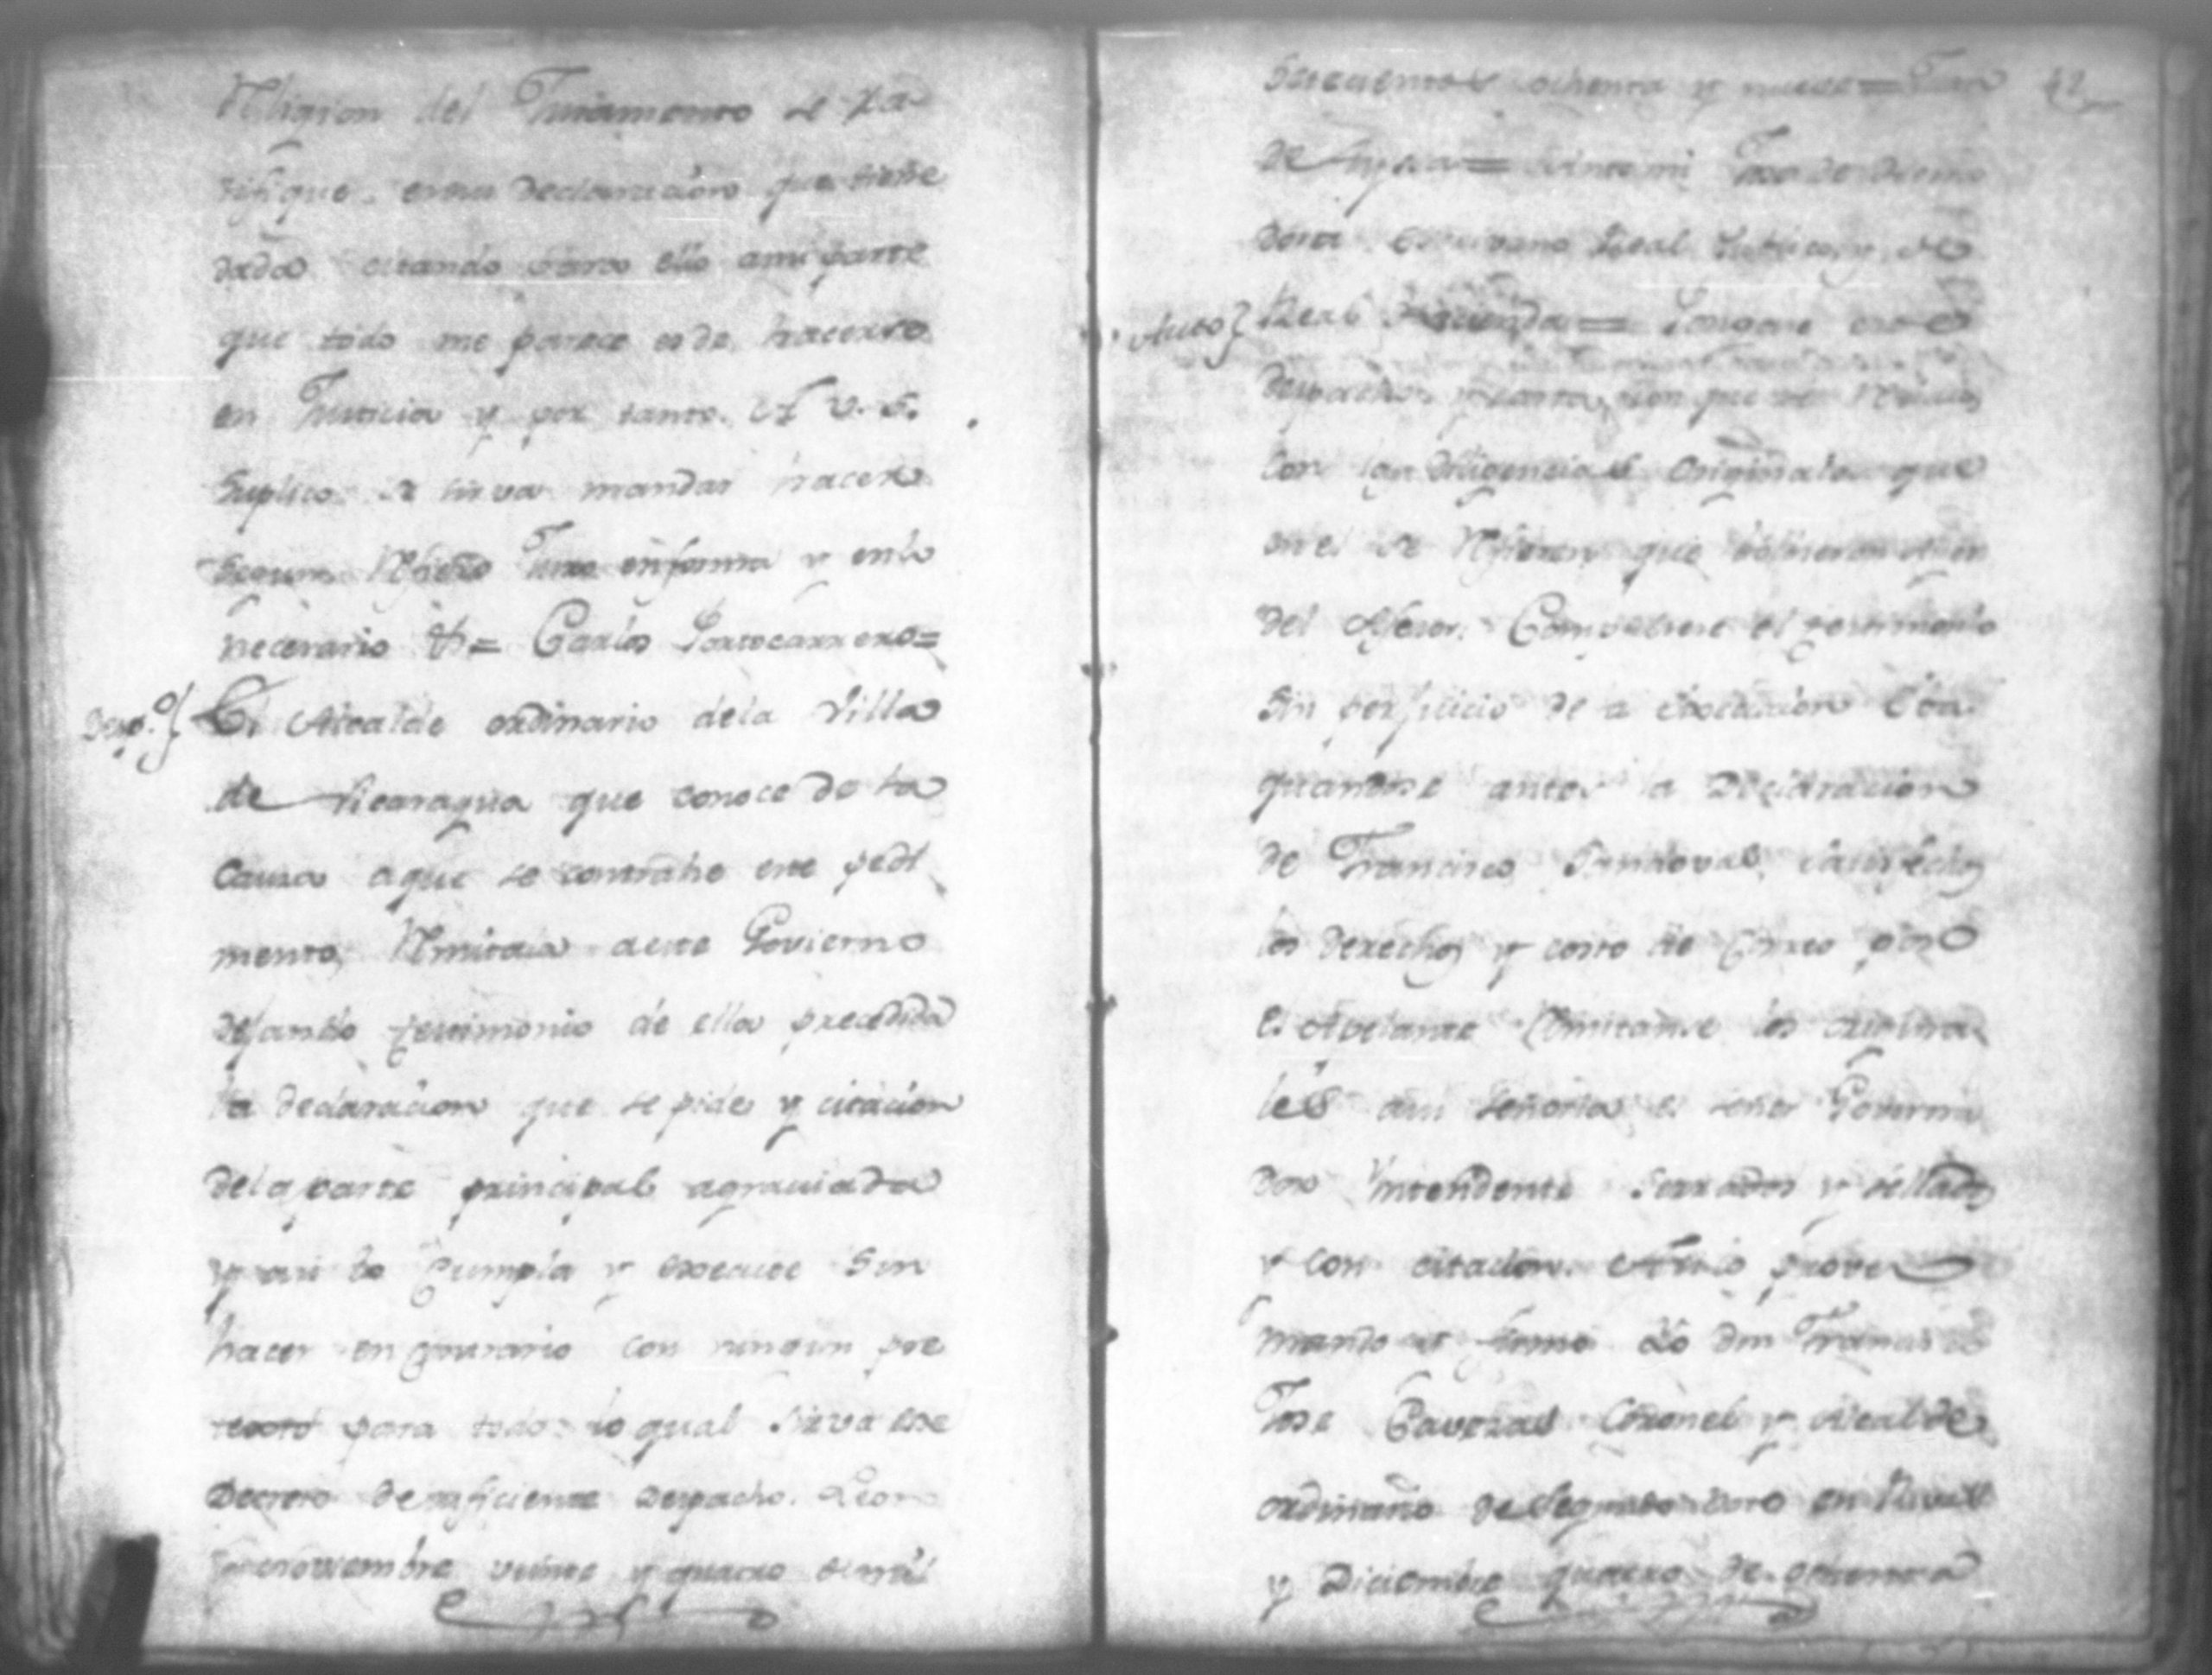 Religion del Juramento se ra-
tifique en su declaracion que tiene
dada citando para ello ami parte
que todo me parece es de hacerse
en Justicia y por tanto. A V. S.
Suplico se sirva mandar hacer
segun refiero Juro enforma y enlo
necesario &= Carlos Portocarrero=
Desp.o} El Alcalde ordinario dela Villa
de Nicaragua que conoce de la
causa aque se contrahe este pedi
mento, Remitala aeste Govierno
dejando testimonio de ella precedida
la declaracion que se pide y citacion
dela parte principal agraviada
y asi lo cumpla y execute sin
hacer en contrario con ningun pre
texto para todo lo qual sirva este
Decreto de suficiente Despacho. Leon
y noviembre veinte y quatro de mil
setecientos ochenta y nueve= Juan 42
de Ayssa= Ante mi
Escrivano Real Publico, y de
Auto} Real Hacienda= Pongase este
despacho
con las diligencias originales que
en el se refieren que
del Asesor. Compulsese el testimonio
sin perjuicio de la
antes la Declaracion
de Francisco Sandoval, satisfechos
los derechos y costo de Correo por
el Apelante Remitanse los origina
les asu Señoria el señor Governa
dor Yntendente serrados y sellados
y con citacion. Asi lo provei
mando y firmo Yo don Francisco
Jose Caveras Coronel y Alcalde
ordinario de segundo voto en
y Diciembre quatro de ochenta